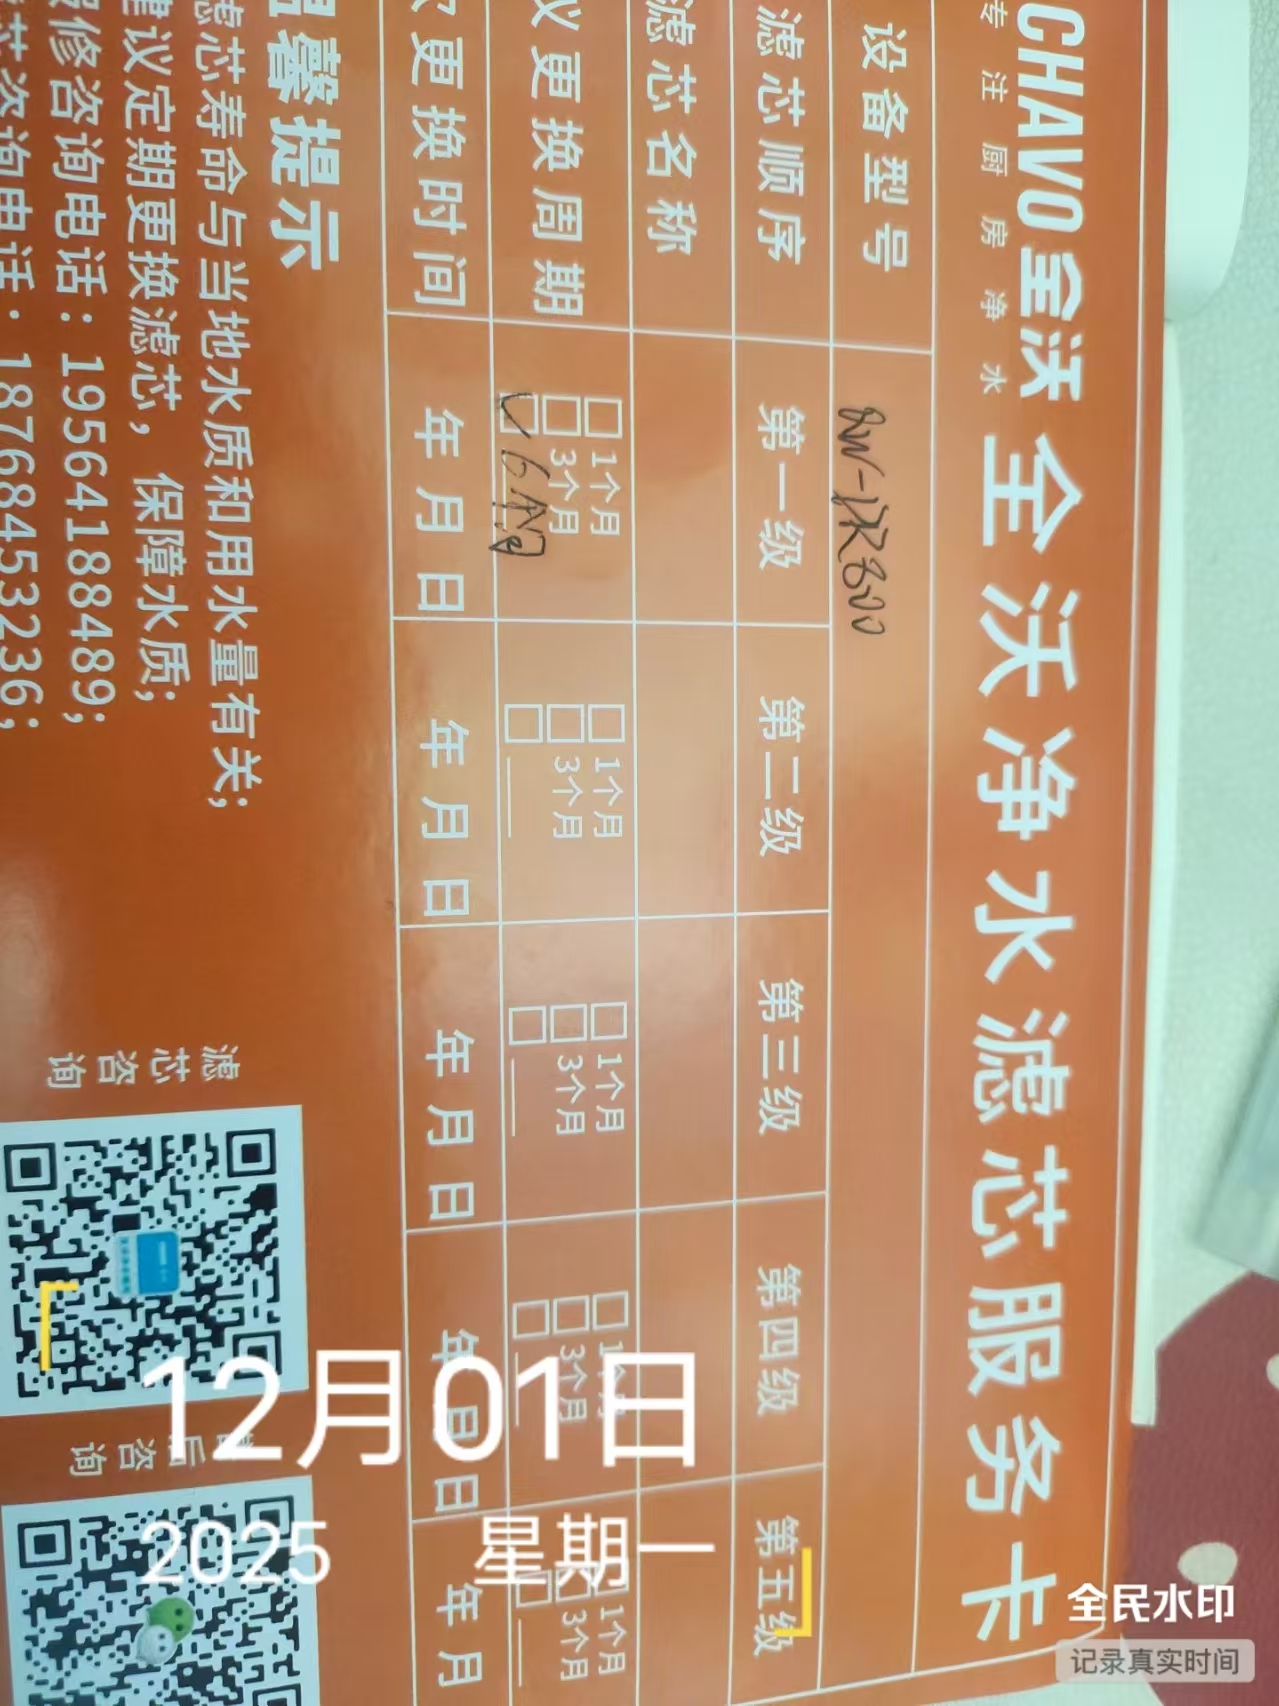 CHAVO 全沃 全沃净水滤芯服务卡
专注厨房净水
设备型号
滤芯顺序 第一级 第二级 第三级 第四级 第五级
滤芯名称
更换周期 1个月 1个月 1个月 1个月 1个月
3个月 3个月 3个月 3个月 3个月
6个月
更换时间 年 月 日 年 月 日 年 月 日 年 月 日 年 月
馨提示
滤芯寿命与当地水质和用水量有关;
建议定期更换滤芯,保障水质;
修咨询电话:19564188489;
芯咨询电话:18768453236;
滤芯咨询
后咨询
12月01日
2025 星期一
全民水印
记录真实时间